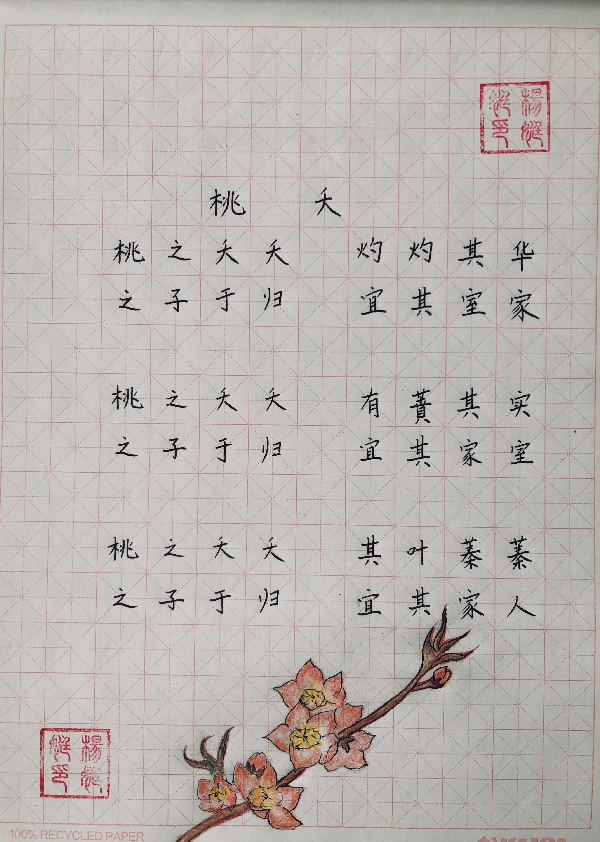 桃 夭
桃之夭夭 灼灼其华
之子于归 宜其室家
桃之夭夭 有蕡其实
之子于归 宜其家室
桃之夭夭 其叶蓁蓁
之子于归 宜其家人
100% RECYCLED PAPER